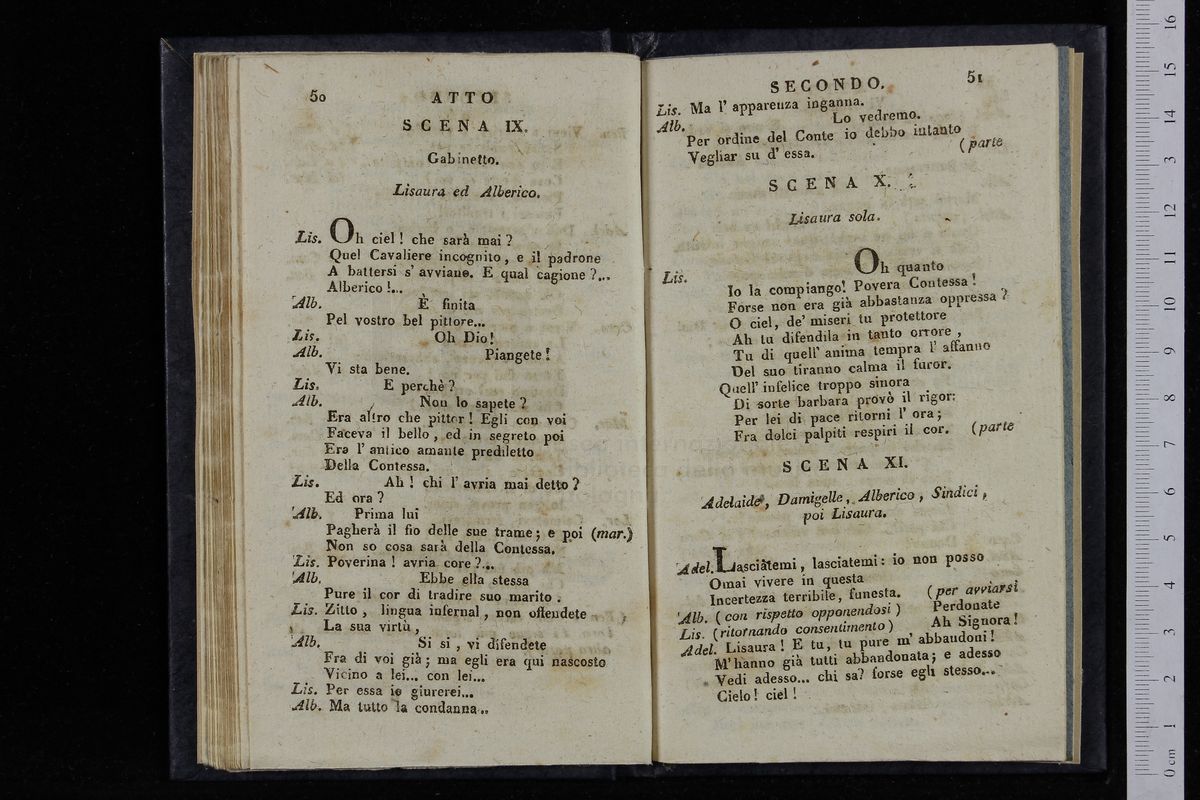 50 ATTO
SCENA IX.
Gabinetto.
Lisaura ed Alberico.
Lis. Oh ciel! che sarà mai?
Quel Cavaliere incognito, e il padrone
A battersi s' avviano. E qual cagione?...
Alberico!...
Alb. È finita
Pel vostro bel pittore...
Lis. Oh Dio!
Alb. Piangete!
Vi sta bene.
Lis. E perchè?
Alb. Non lo sapete?
Era altro che pittor! Egli con voi
Faceva il bello, ed in segreto poi
Era l' antico amante prediletto
Della Contessa.
Lis. Ah! chi l' avria mai detto?
Ed ora?
Alb. Prima lui
Pagherà il fio delle sue trame; e poi (mar.)
Non so cosa sarà della Contessa.
Lis. Poverina! avria core?...
Alb. Ebbe ella stessa
Pure il cor di tradire suo marito.
Lis. Zitto, lingua infernal, non offendete
La sua virtù,
Alb. Si si, vi difendete
Fra di voi già; ma egli era qui nascosto
Vicino a lei... con lei...
Lis. Per essa io giurerei...
Alb. Ma tutto la condanna..
SECONDO. 51
Lis. Ma l' apparenza inganna.
Alb. Lo vedremo.
Per ordine del Conte io debbo intanto
Vegliar su d' essa. (parte
SCENA X.
Lisaura sola.
Lis. Oh quanto
Io la compiango! Povera Contessa!
Forse non era già abbastanza oppressa?
O ciel, de' miseri tu protettore
Ah tu difendila in tanto orrore,
Tu di quell' anima tempra l' affanno
Del suo tiranno calma il furor.
Quell' infelice troppo sinora
Di sorte barbara provò il rigor:
Per lei di pace ritorni l' ora;
Fra dolci palpiti respiri il cor. (parte
SCENA XI.
Adelaide, Damigelle, Alberico, Sindici,
poi Lisaura.
Adel. Lasciatemi, lasciatemi: io non posso
Omai vivere in questa
Incertezza terribile, funesta. (per avviarsi
Alb. (con rispetto opponendosi) Perdonate
Lis. (ritornando consentimento) Ah Signora!
Adel. Lisaura! E tu, tu pure m' abbandoni!
M' hanno già tutti abbandonata; e adesso
Vedi adesso... chi sa? forse egli stesso...
Cielo! ciel!
0 cm 1 2 3 4 5 6 7 8 9 10 11 12 13 14 15 16